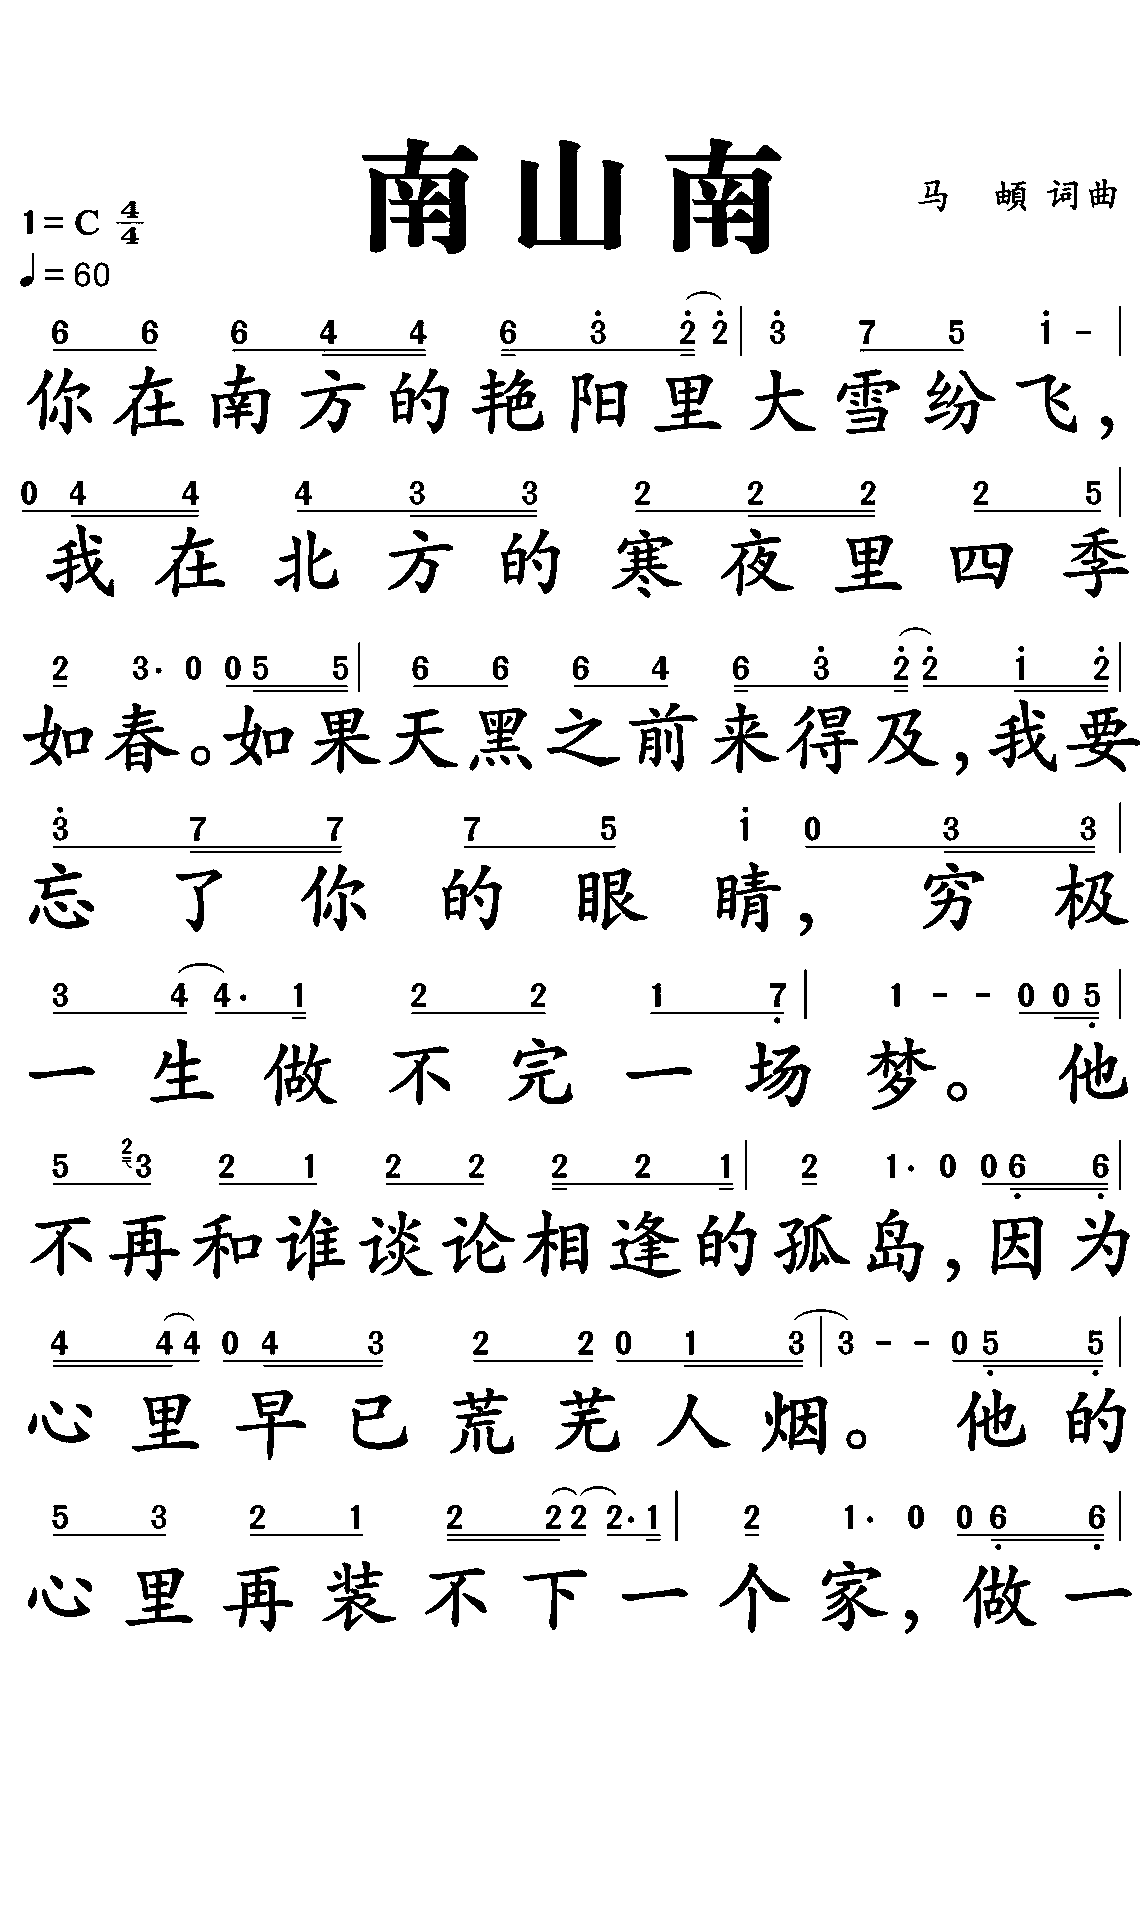 南山南
马 頔 词曲
1=C 4/4
♩=60
6 6 6 4 4 6 3 2 2 | 3 7 5 1 - |
你在南方的艳阳里大雪纷飞，
0 4 4 4 3 3 2 2 2 2 5 |
我在北方的寒夜里四季
2 3· 0 0 5 5 | 6 6 6 4 6 3 2 2 1 2 |
如春。如果天黑之前来得及，我要
3 7 7 7 5 1 0 3 3 |
忘了你的眼睛，穷极
3 4 4· 1 2 2 1 7 | 1 - - 0 0 5 |
一生做不完一场梦。他
5 2 3 2 1 2 2 2 2 1 | 2 1· 0 0 6 6 |
不再和谁谈论相逢的孤岛，因为
4 4 4 0 4 3 2 2 0 1 3 | 3 - - 0 5 5 |
心里早已荒芜人烟。他的
5 3 2 1 2 2 2 2· 1 | 2 1· 0 0 6 6 |
心里再装不下一个家，做一